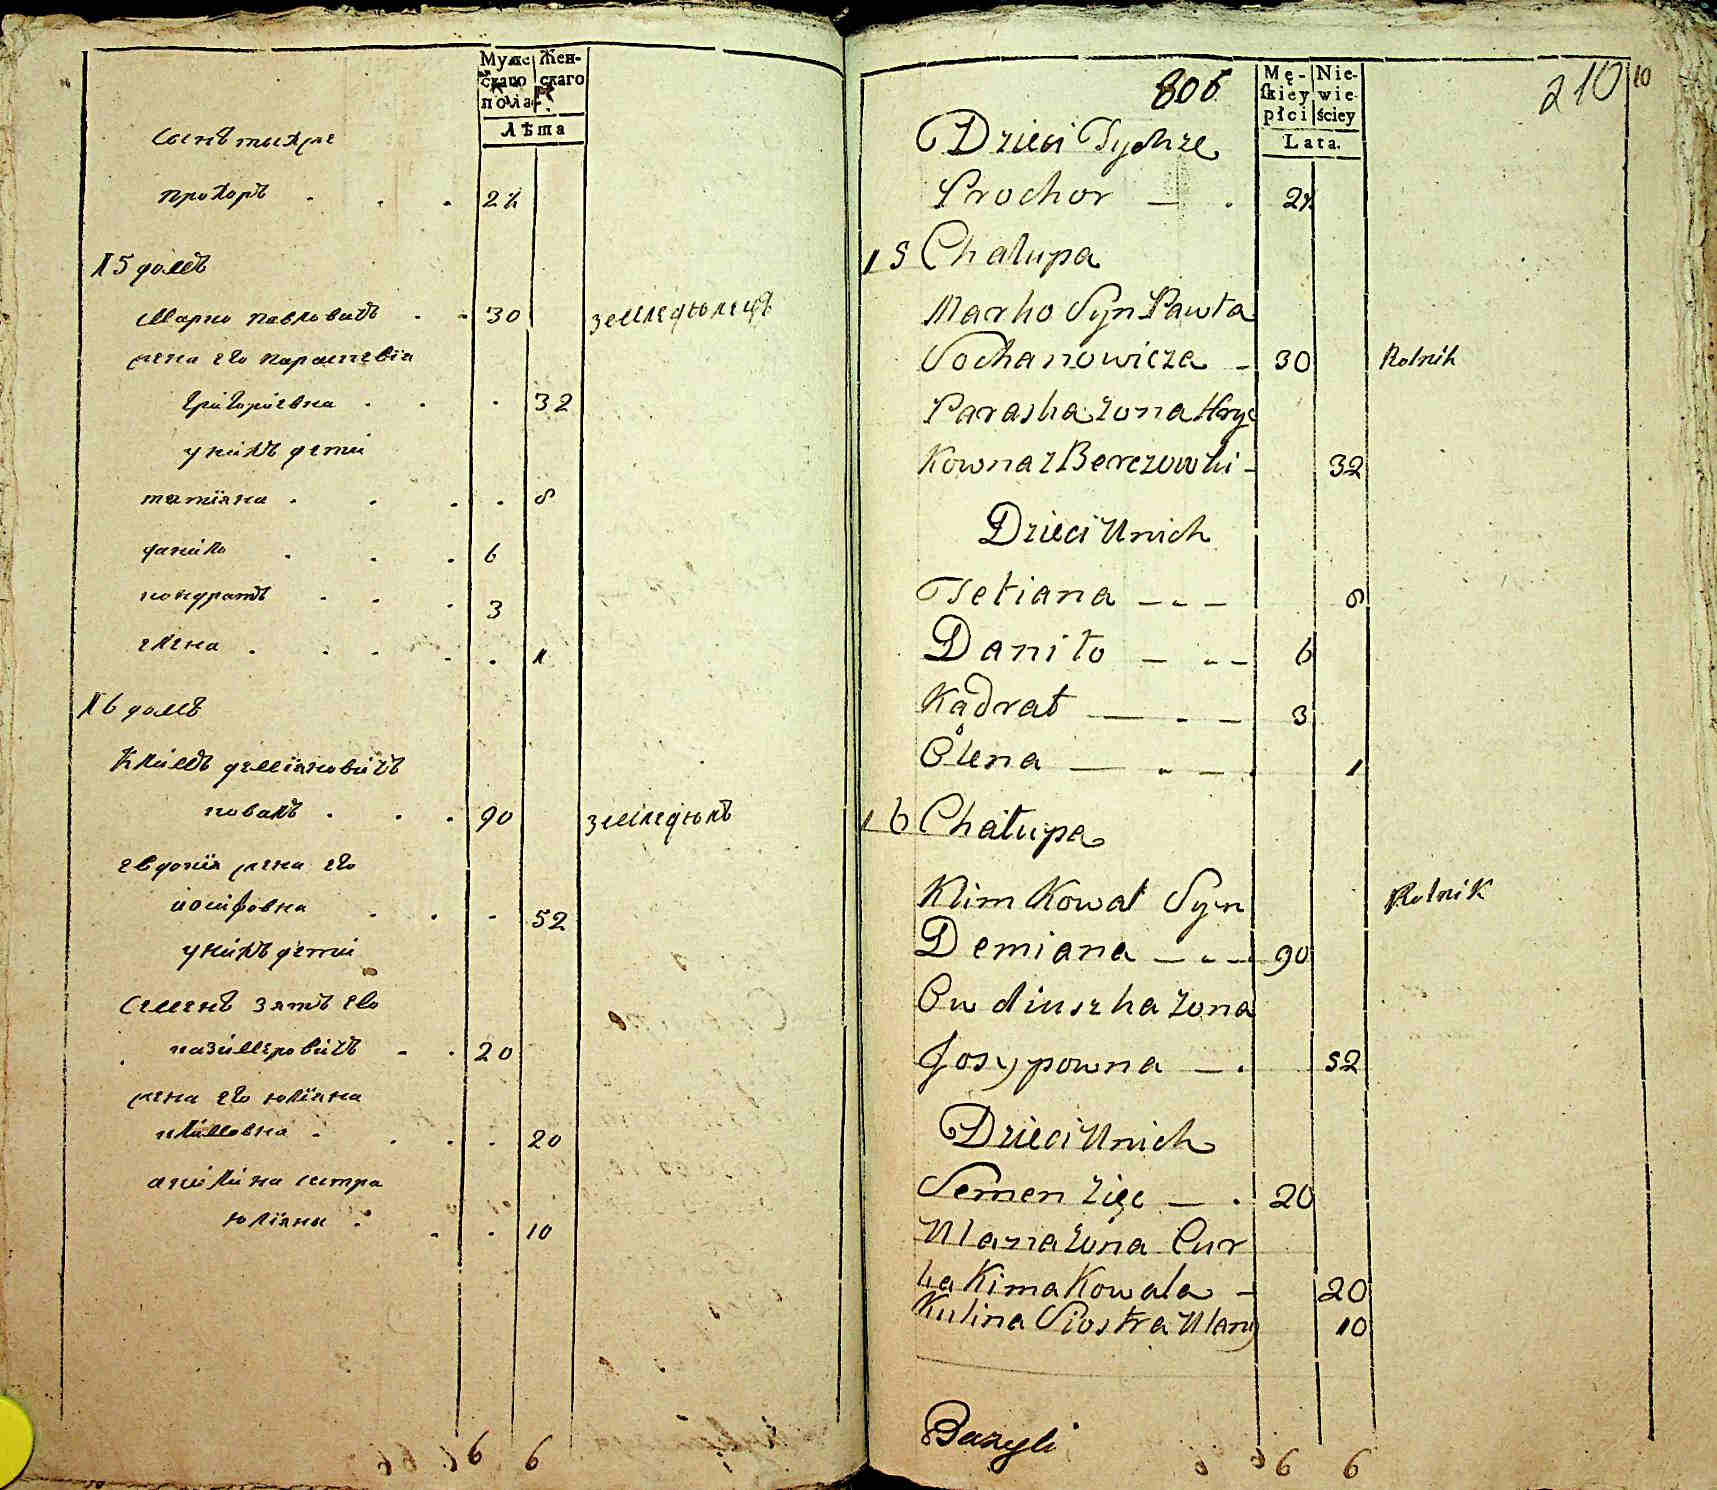 Мужескаго пола
Женскаго
Лѣта
сынъ тихрге
прохоръ . . . 2½
15 домъ
Марко павловичъ . . 30 земледюлецъ
жена его параскевiя
григориевна . . . 32
у нихъ дети
татiяна . . . . 8
данило . . . 6
кондратъ . . . 3
елена . . . . . 1
16 домъ
Климъ демiяновичъ
коваль . . . 90 земледюлъ
евдокiя жена его
йосифовна . . . 52
у нихъ дети
семенъ зять его
казимеровичъ . . 20
жена его юлiяна
климовна . . . . 20
акилина сестра
юлiяны . . . 10
6 6
806
210
10
Mę-skiey płci
Niewieściey
Lata.
Dzieci Tychże
Prochor — . 2½
15 Chałupa
Marko Syn Pawła
Sochanowicza - 30 Rolnik
Paraska żona Hryc
Kowna z Berezowki - 32
Dzieci Unich
Tetiana - - - 8
Daniło - - - 6
Kądrat — - - 3
Olena — - - 1
16 Chałupa
Klim Kowal Syn Rolnik
Demiana - - - 90
Ow diuszka żona
Josypowna — . 52
Dzieci Unich
Semen zięc — . 20
Ulana żona Cur
ka Kima Kowala - 20
Kulina Siostra Ulany 10
Bazyli
6 6